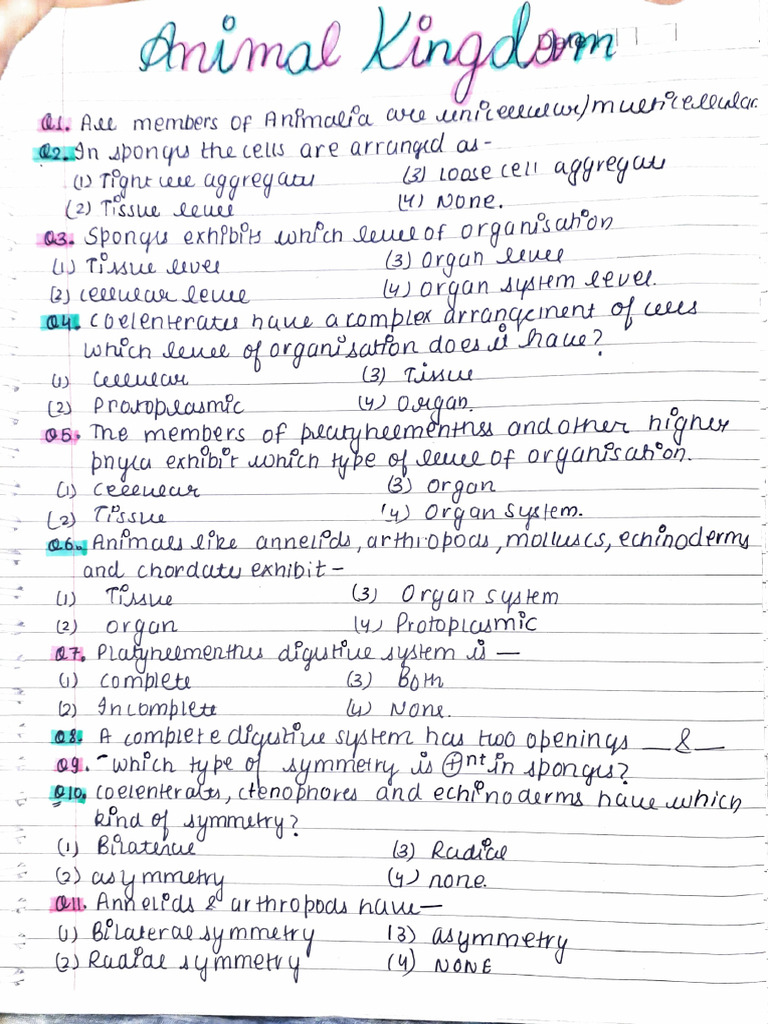 Animal Kingdom
Q1. All members of Animalia are unicellular/multicellular.
Q2. In sponges the cells are arranged as -
(1) Tight cell aggregates (3) Loose cell aggregates
(2) Tissue level (4) None.
Q3. Sponges exhibits which level of organisation
(1) Tissue level (3) Organ level
(2) cellular level (4) Organ system level.
Q4. Coelenterates have a complex arrangement of cells
which level of organisation does it have?
(1) Cellular (3) Tissue
(2) Protoplasmic (4) Organ.
Q5. The members of platyhelminthes and other higher
phyla exhibit which type of level of organisation.
(1) Cellular (3) Organ
(2) Tissue (4) Organ System.
Q6. Animals like annelids, arthropods, molluscs, echinoderms
and chordates exhibit -
(1) Tissue (3) Organ system
(2) organ (4) Protoplasmic
Q7. Platyhelminthes digestive system is -
(1) complete (3) Both
(2) Incomplete (4) None.
Q8. A complete digestive system has two openings __ & __
Q9. - which type of symmetry is ⊕nt in sponges?
Q10. Coelenterates, ctenophores and echinoderms have which
kind of symmetry?
(1) Bilateral (3) Radial
(2) asymmetry (4) none.
Q11. Annelids & arthropods have -
(1) Bilateral symmetry (3) asymmetry
(2) Radial symmetry (4) NONE